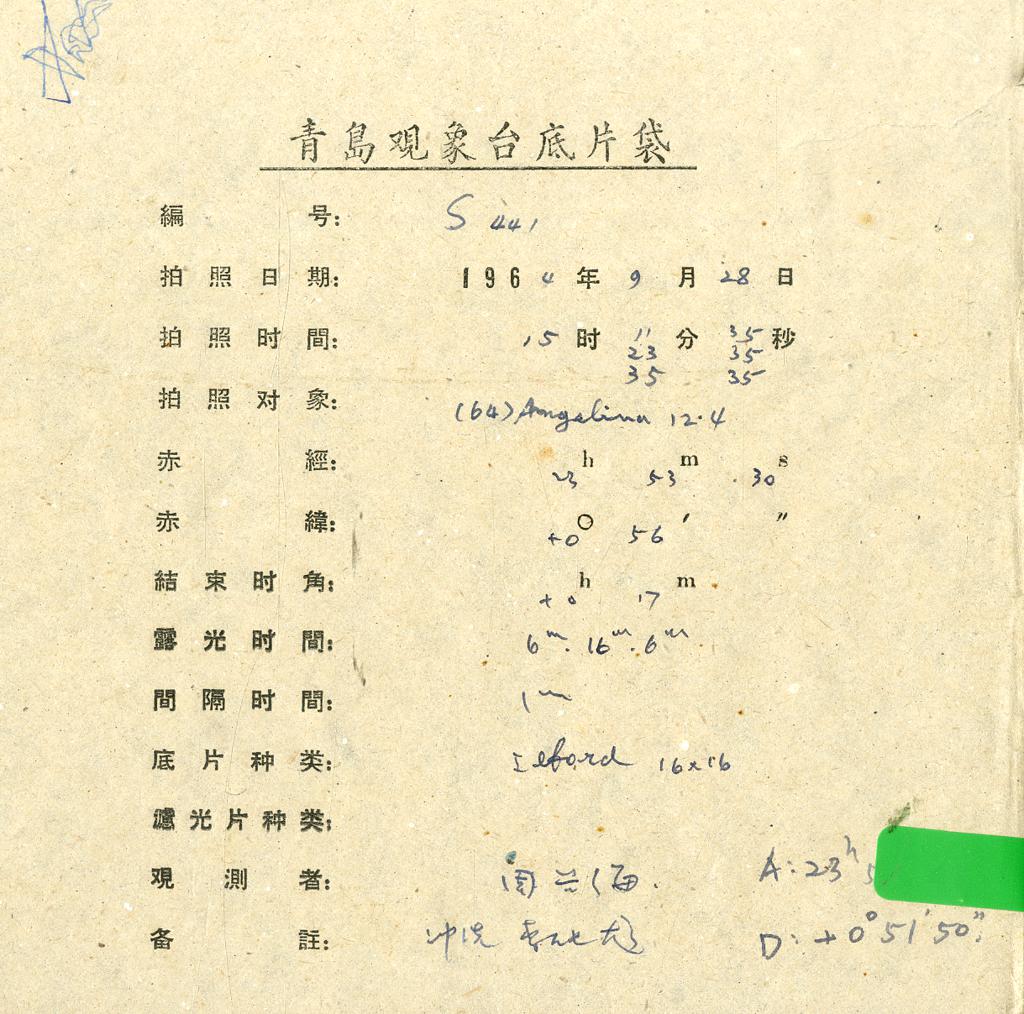 青島观象台底片袋
編 号: S 441
拍照日期: 1964年9月28日
拍照时間: 15时11分35秒
23 35
35 35
拍照对象: (64) Angelina 12.4
赤 經: 23h 53m 30s
赤 緯: +0° 56′ ″
結束时角: +0h 17m
露光时間: 6m. 16m. 6m
間隔时間: 1m
底片种类: Ilford 16×16
濾光片种类:
观測者: A: 23h 5
备 註: 冲洗 D: +0° 51′ 50″